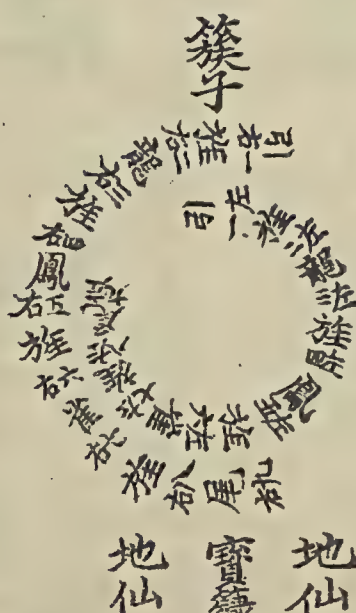 簇子
引右一旌右二龍右三旌右四鳳右五旌右六雀右七旌右八尾右九
引左一旌左二龍左三旌左四鳳左五旌左六雀左七旌左八
地仙
寶
地仙